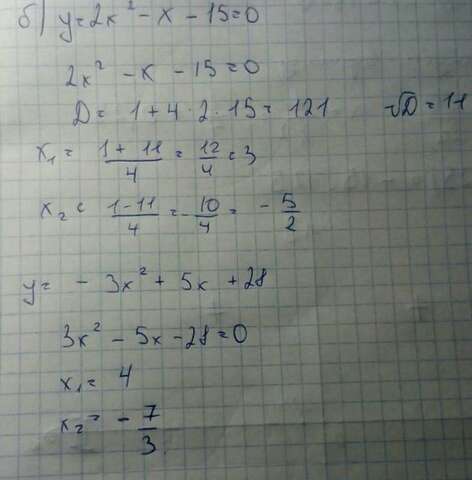 б) y=2x² - x - 15=0
2x² - x - 15=0
D= 1+4·2·15= 121 √D=11
x₁= (1+11)/4 = 12/4 = 3
x₂= (1-11)/4 = -10/4 = -5/2
y= - 3x² + 5x + 28
3x² - 5x - 28=0
x₁= 4
x₂= - 7/3